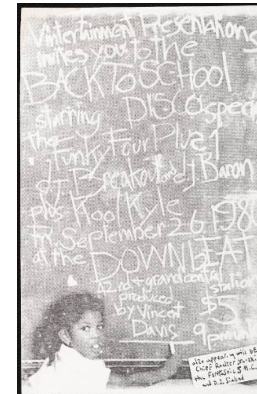 Vintertainment Presentations
invites you to the
BACK To SCHOOL
DISCO special
starring
the Funky Four Plus 1
DJ Breakout and DJ Baron
plus Kool Kyle
Fri. September 26, 1980
at the DOWNBEAT
42nd + grand central station
produced
by Vincent
Davis
$5
9pm
also appearing will be
the Fantastic 5 M.C.
and D.J.